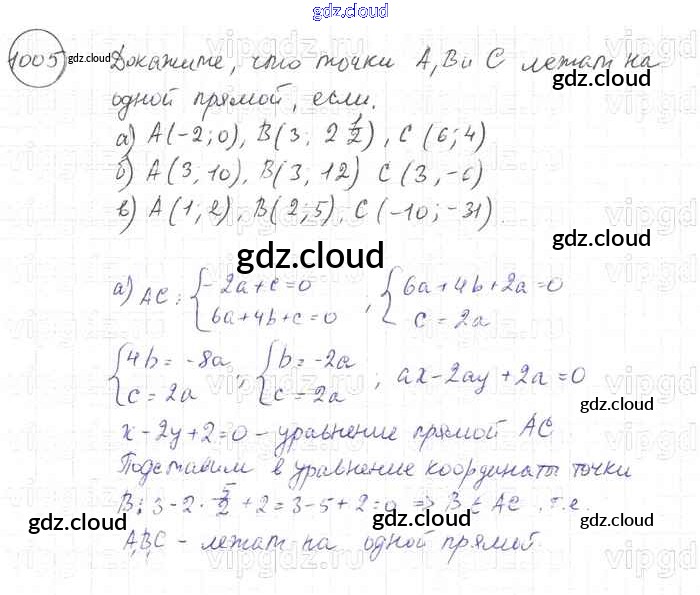 gdz.cloud
1005 gdz.cloud Докажите, что точки A, B и C лежат на
gdz.cloud
одной прямой, если.
а) A(-2; 0), B(3; 2 1/2), C(6; 4)
б) A(3, 10), B(3, 12) C(3, -6)
в) A(1; 2), B(2; 5), C(-10; -31)
gdz.cloud
gdz.cloud
а) AC: { -2a+c=0 ; { 6a+4b+2a=0
{ 6a+4b+c=0 { c=2a
{ 4b=-8a ; { b=-2a ; ax-2ay+2a=0
{ c=2a { c=2a
gdz.cloud
gdz.cloud
x-2y+2=0 - уравнение прямой AC
Подставим в уравнение координаты точки
B: 3-2·5/2+2=3-5+2=0 ⇒ B ∈ AC, т.е.
gdz.cloud gdz.cloud gdz.cloud
A,B,C - лежат на одной прямой.